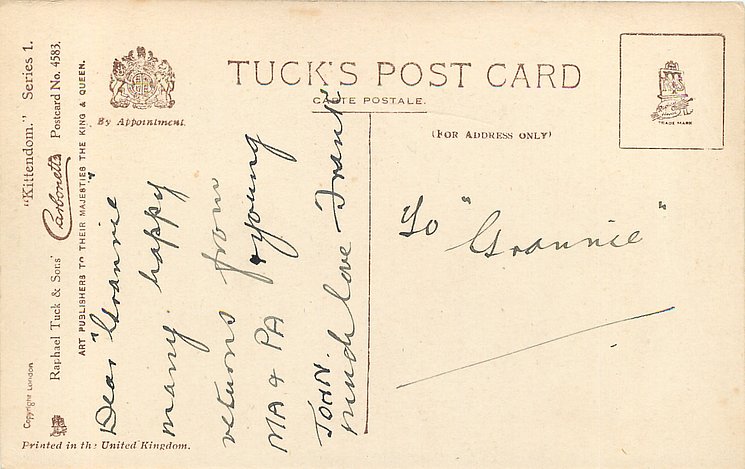 "Kittendom." Series 1.
Raphael Tuck & Sons' Carbonette Postcard No. 4583.
ART PUBLISHERS TO THEIR MAJESTIES THE KING & QUEEN.
Copyright London
Printed in the United Kingdom.
By Appointment.
TUCK'S POST CARD
CARTE POSTALE.
(FOR ADDRESS ONLY)
TRADE MARK
Dear "Grannie"
many happy
returns from
MA & PA & young
JOHN.
much love Frank
To "Grannie"